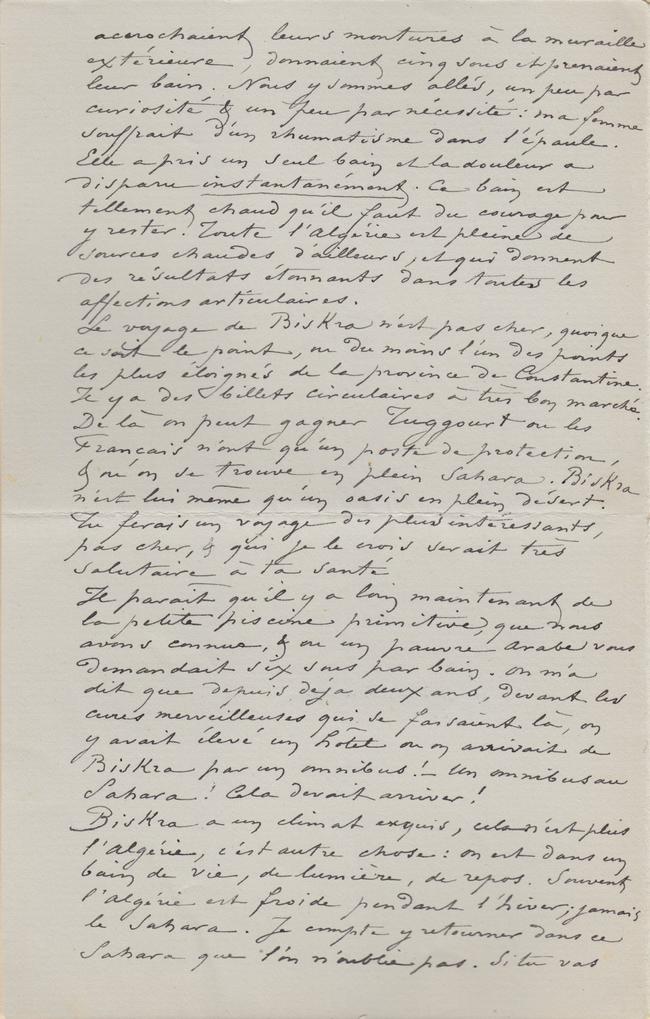 accrochaient leurs montures à la muraille
extérieure, donnaient cinq sous et prenaient
leur bain. Nous y sommes allés, un peu par
curiosité & un peu par nécessité : ma femme
souffrait d'un rhumatisme dans l'épaule.
Elle a pris un seul bain et la douleur a
disparu instantanément. Ce bain est
tellement chaud qu'il faut du courage pour
y rester. Toute l'Algérie est pleine de
sources chaudes d'ailleurs, et qui donnent
des résultats étonnants dans toutes les
affections articulaires.
Le voyage de Biskra n'est pas cher, quoique
ce soit le point, ou du moins l'un des points
les plus éloignés de la province de Constantine.
Il y a des billets circulaires à très bon marché.
De là on peut gagner Tuggourt ou les
Français n'ont qu'un poste de protection,
& où on se trouve en plein Sahara. Biskra
n'est lui même qu'un oasis en plein désert.
Tu ferais un voyage des plus intéressants,
pas cher, & qui je le crois serait très
salutaire à ta santé
Il paraît qu'il y a loin maintenant de
la petite piscine primitive, que nous
avons connue, & ou un pauvre arabe vous
demandait six sous par bain. On m'a
dit que depuis déja deux ans, devant les
cures merveilleuses qui se faisaient là, on
y avait élevé un hôtel ou on arrivait de
Biskra par un omnibus ! – Un omnibus au
Sahara ! Cela devait arriver !
Biskra a un climat exquis, cela n'est plus
l'Algérie, c'est autre chose : on est dans un
bain de vie, de lumière, de repos. Souvent
l'algérie est froide pendant l'hiver ; jamais
le Sahara. Je compte y retourner dans ce
Sahara que l'on n'oublie pas. Si tu vas